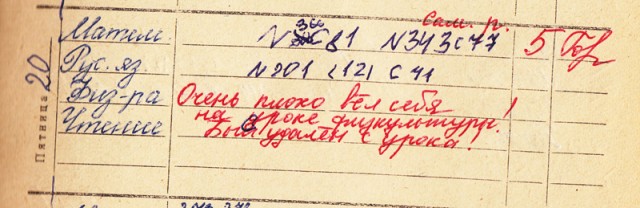 Сам. р.
Матем. N 343 с 77 5
Рус. яз. N 201 (12) с 41
Физ-ра Очень плохо вёл себя
на уроке физкультуры!
Чтение Был удален с урока!
Пятница 20